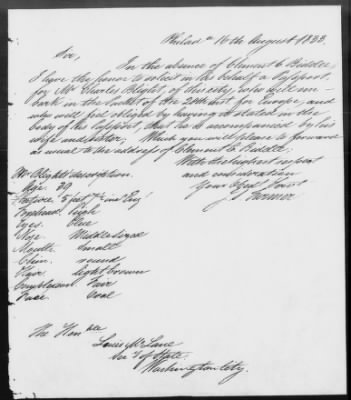 Philad.a 16th August 1833.
Sir,
In the absence of Clement C. Biddle,
I have the honor to solicit in his behalf a Passport,
for Mr Charles Blight, of this city, who will em-
bark in the Packet of the 20th inst. for Europe, and
who will feel obliged by having it stated in the
body of his Passport, that he is accompanied by his
wife and sister; Which you will please to forward
as usual to the address of Clement C. Biddle.
With the highest respect
and consideration
Your Obed. Servt
J.
Mr Blight's description.
Age. 39
Stature 5 feet in. Eng.
Forehead. high
Eyes. Blue
Nose. Middle sized
Mouth. Small
Chin. round
Hair light brown
Complexion Fair
Face. Oval
The Honble
Louis McLane
Secy of State.
Washington City.